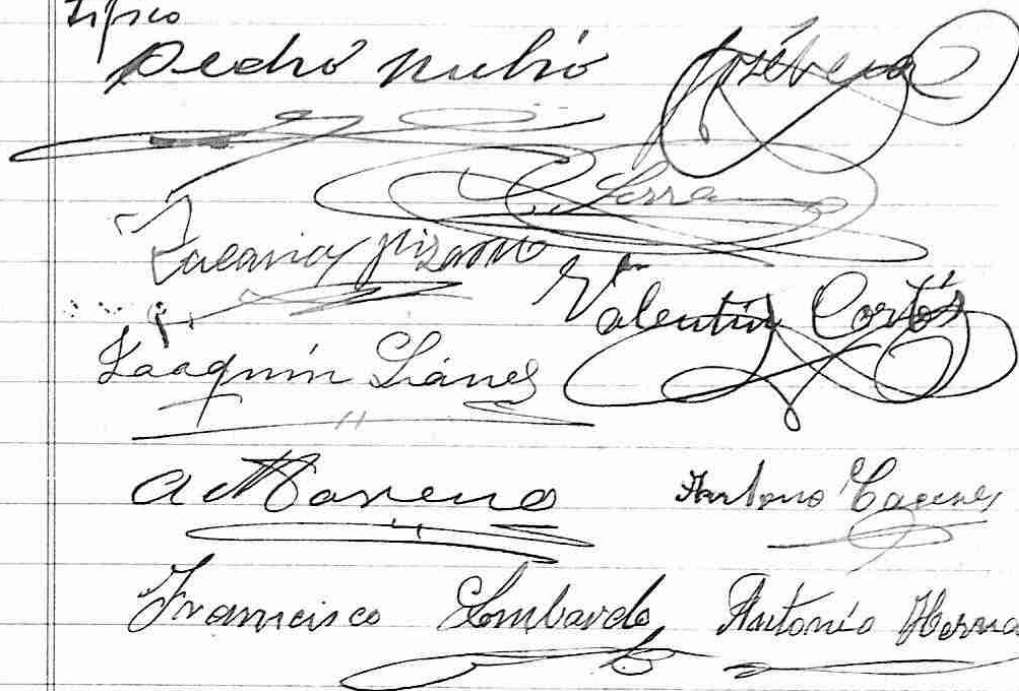 tifico
Pedro Rubio José Vera
Serra
Zacarias Pizarro
Valentín Cortés
Joaquín Liánes
A Moreno Antonio Caceres
Francisco Lombardo Antonio Herna